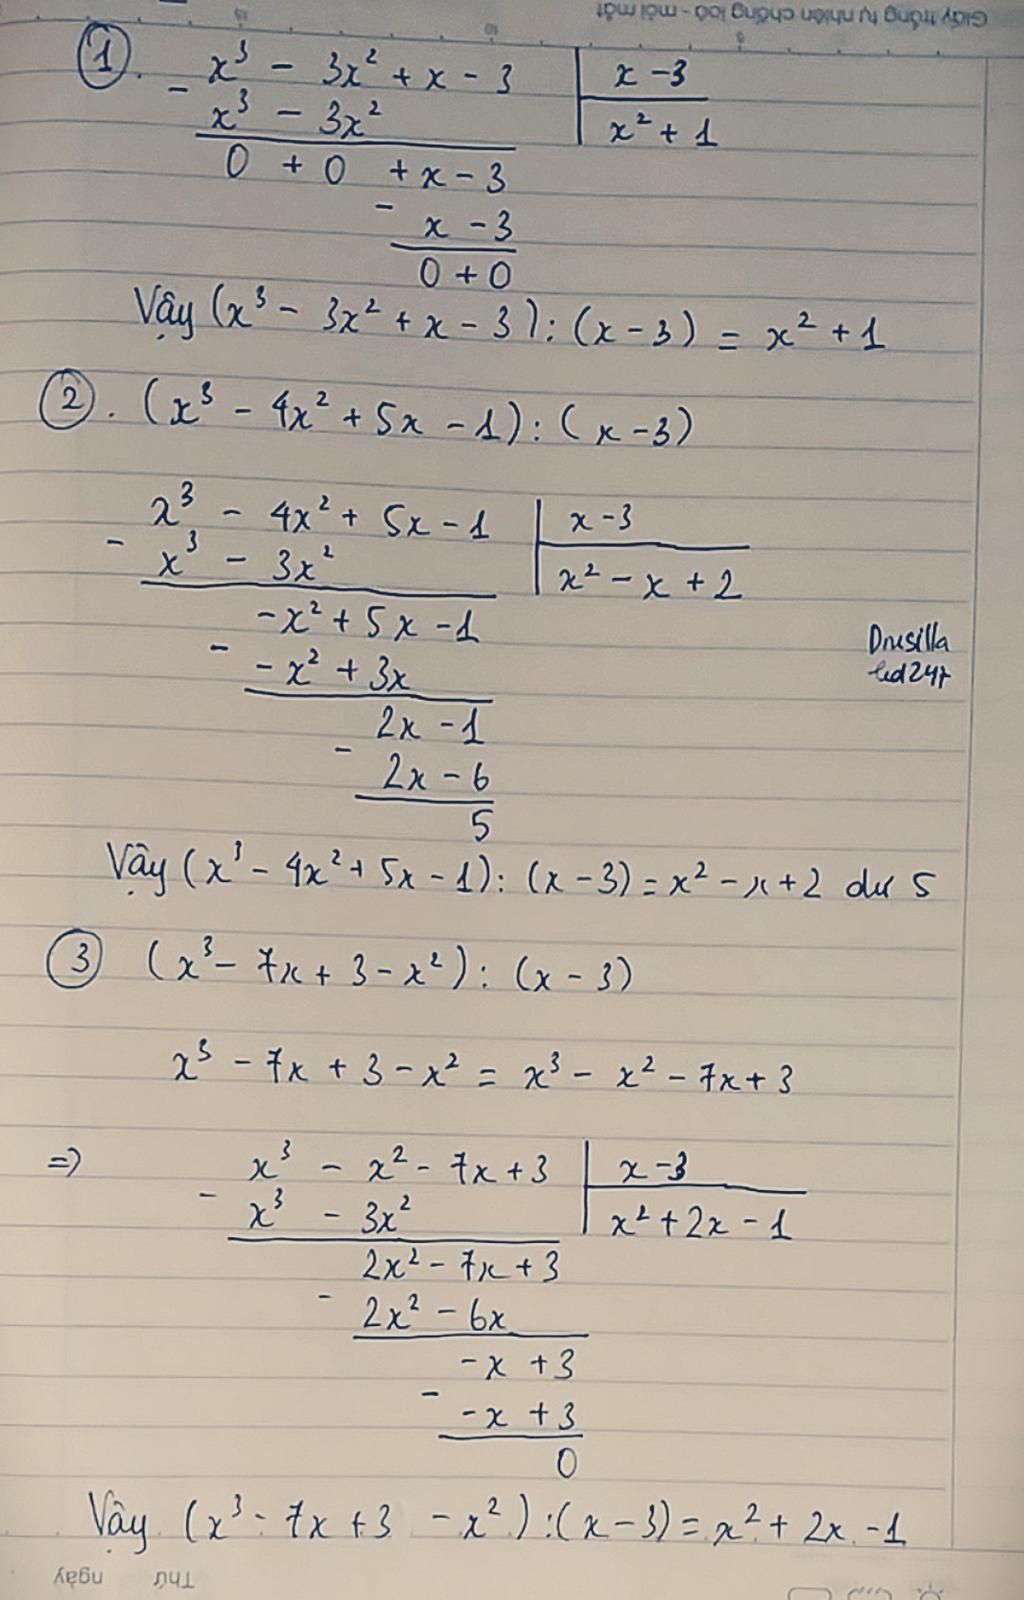 Giấy trắng tự nhiên chống loá - mỏi mắt
15 10 5
① . x³ - 3x² + x - 3 | x - 3
- x³ - 3x² | x² + 1
0 + 0 + x - 3
- x - 3
0 + 0
Vậy (x³ - 3x² + x - 3) : (x - 3) = x² + 1
② . (x³ - 4x² + 5x - 1) : (x - 3)
x³ - 4x² + 5x - 1 | x - 3
- x³ - 3x² | x² - x + 2
-x² + 5x - 1
- -x² + 3x
Drusilla
2x - 1
- 2x - 6
5
Vậy (x³ - 4x² + 5x - 1) : (x - 3) = x² - x + 2 dư 5
③ (x³ - 7x + 3 - x²) : (x - 3)
x³ - 7x + 3 - x² = x³ - x² - 7x + 3
=> x³ - x² - 7x + 3 | x - 3
- x³ - 3x² | x² + 2x - 1
2x² - 7x + 3
- 2x² - 6x
-x + 3
- -x + 3
0
Vậy (x³ - 7x + 3 - x²) : (x - 3) = x² + 2x - 1
Thứ ngày